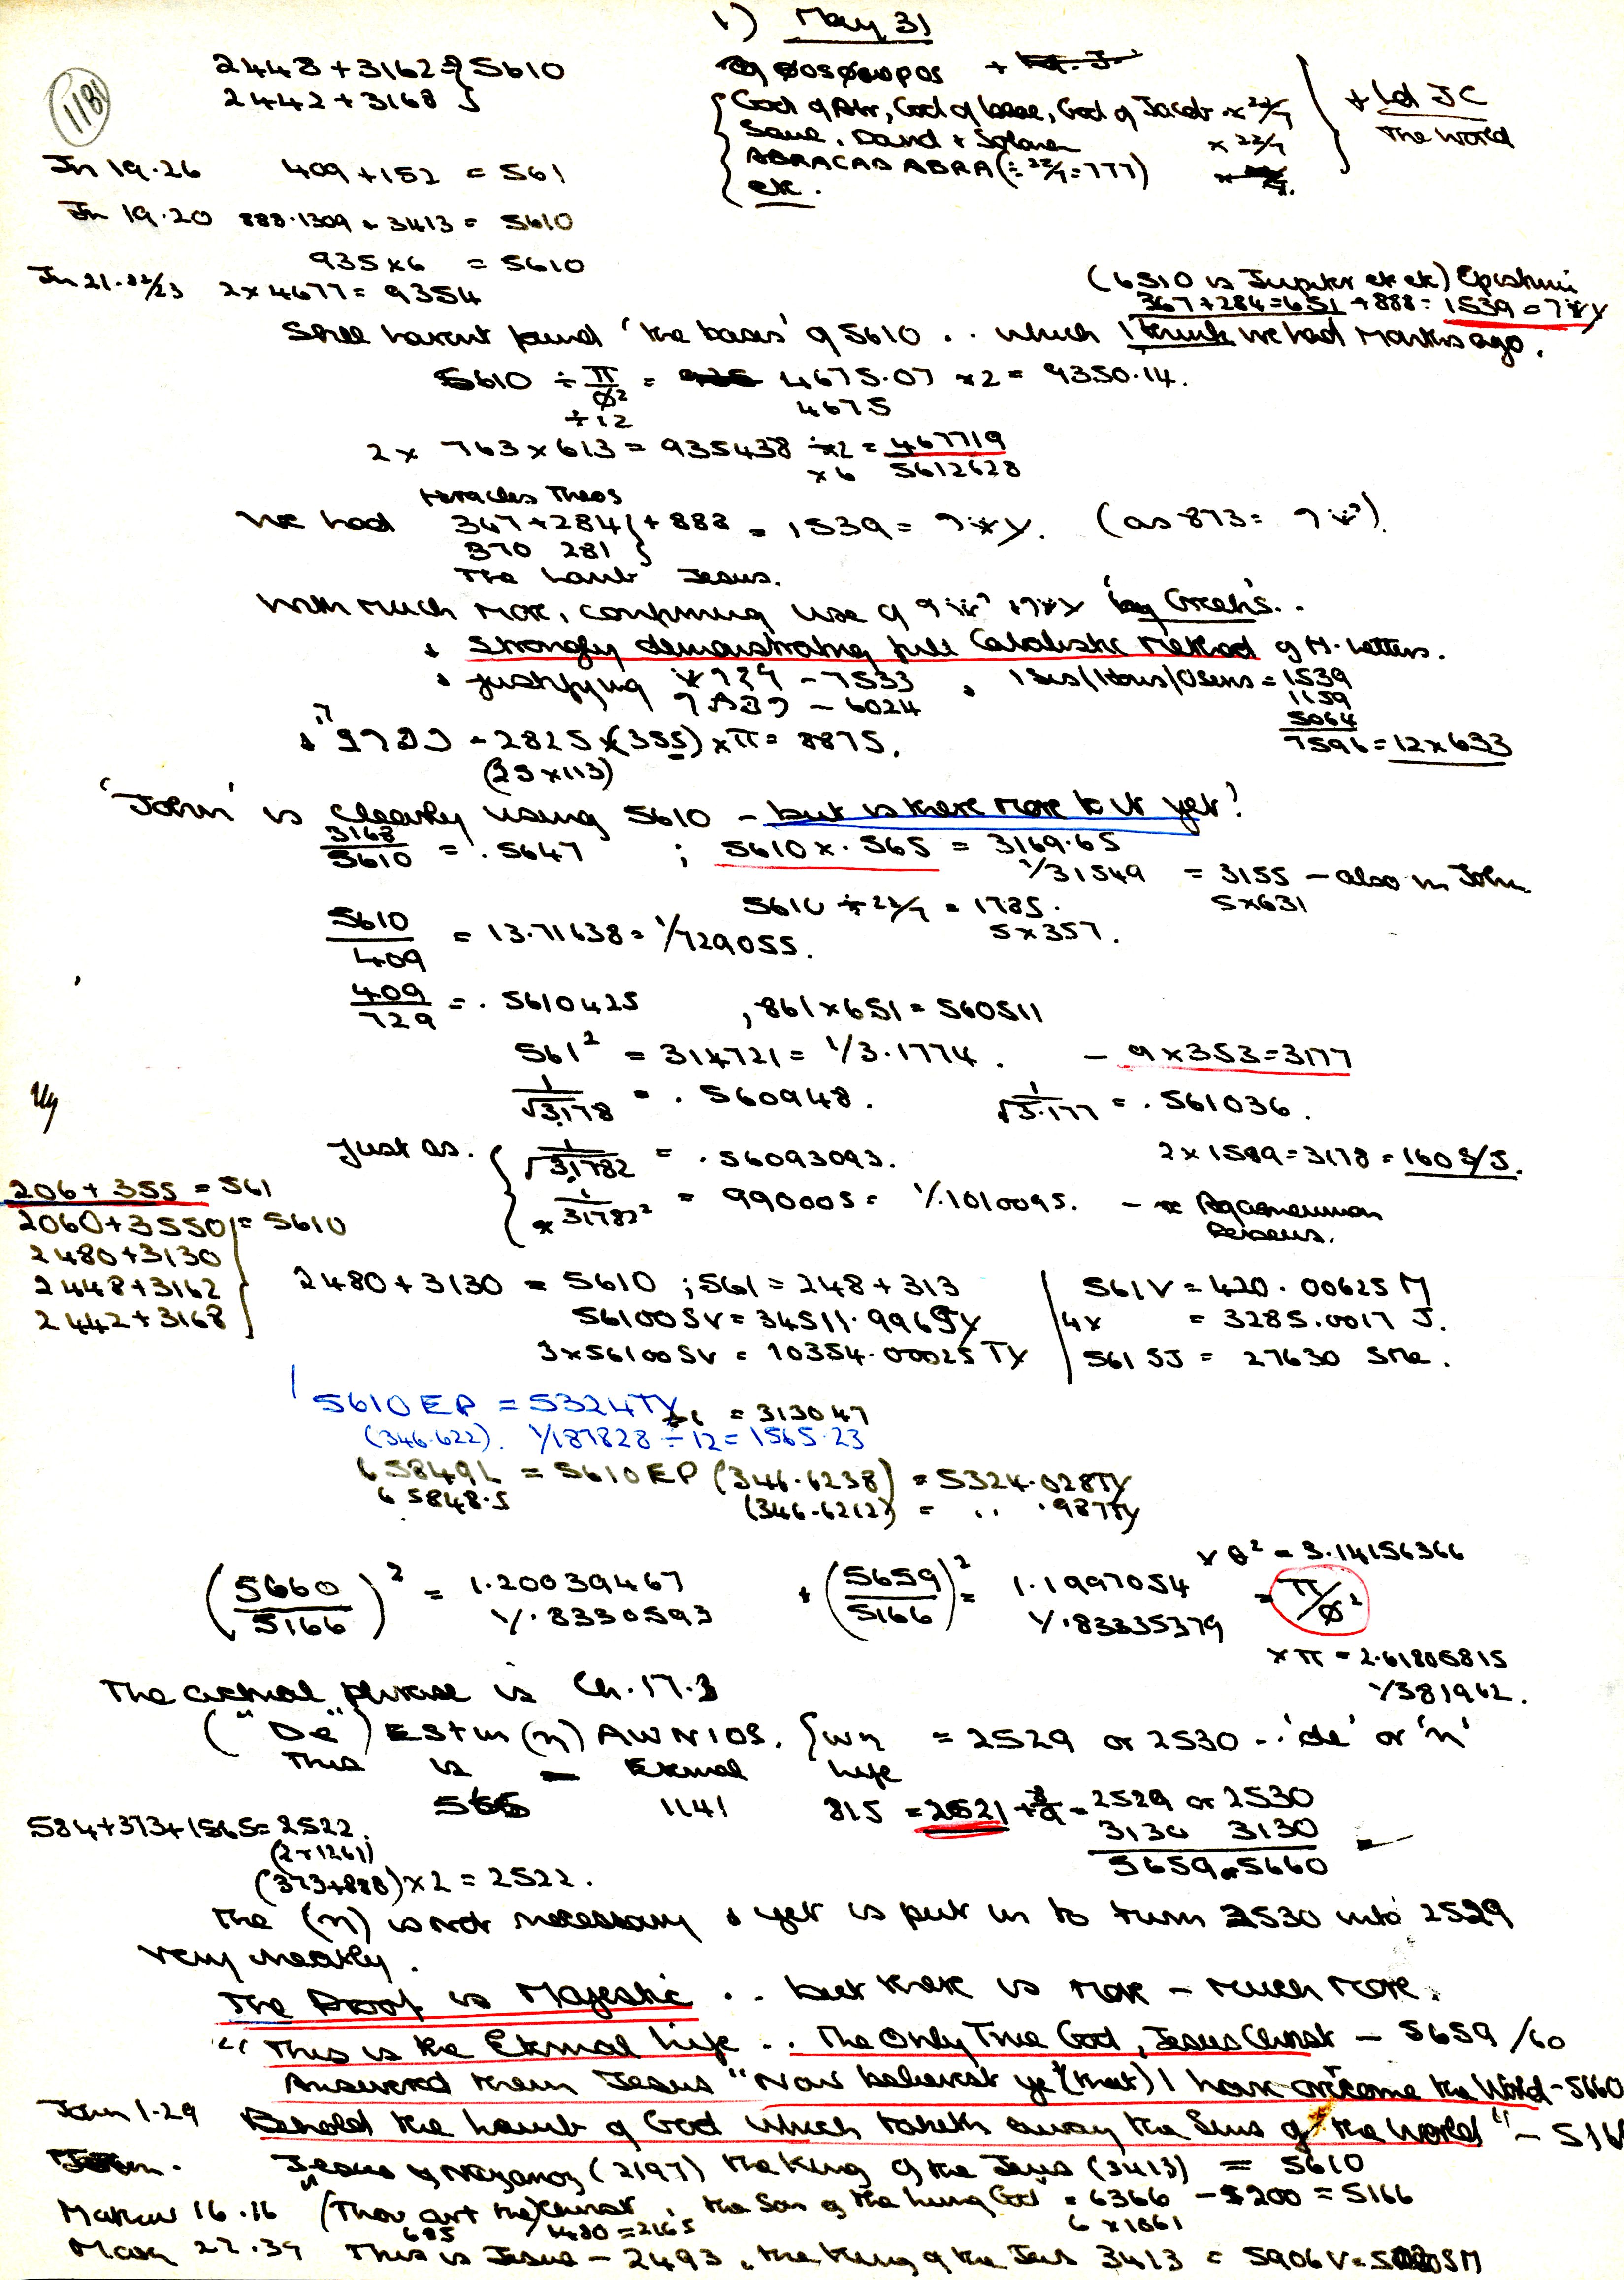 1) May 31
1181
2448 + 3162 = } 5610
2442 + 3168 }
φοσφωροs +
{ God of Abr, God of Isaac, God of Jacob x 22/7 } + Ld JC
Saul, David + Solomon x 22/7 The World
ABRACADABRA (÷ 22/7 = 777)
etc.
Jn 19.26 409 + 152 = 561
Jn 19.20 888.1309 + 3413 = 5610
935 x 6 = 5610
Jn 21.22/23 2 x 4677 = 9354
(6510 is Jupiter etc etc) Epistimi
367 + 284 = 651 + 888 = 1539 =
Still havent found 'the basis' of 5610 .. which I think we had months ago.
5610 ÷ π/Ø² = 4675.07 x 2 = 9350.14.
÷ 12 4675
2 x 763 x 613 = 935438 ÷ 2 = 467719
x 6 5612628
Heracles Theos
We had 367 + 284 } + 888 = 1539 = (as 873 = )
370 281 }
The Lamb Jesus.
With much more, confirming use of by Greeks'..
& strongly demonstrating full Cabalistic Method of H. letters.
& justifying - 7533 , Isis/Horus/Osiris = 1539
- 6024 1159
5064
- 2825 x (355) x π = 8875. 7596 = 12 x 633
(25 x 113)
'John' is clearly using 5610 - but is there more to it yet?
3168/5610 = .5647 ; 5610 x .565 = 3169.65
1/31549 = 3155 - also in John
5610 ÷ 22/7 = 1785. 5 x 631
5 x 357.
5610/409 = 13.71638 = 1/729055.
409/729 = .5610425 , 861 x 651 = 560511
561² = 314721 = 1/3.1774. - 9 x 353 = 3177
1/√3.178 = .560948. 1/√3.177 = .561036.
Just as. { 1/√3.1782 = .56093093. 2 x 1589 = 3178 = 1603/J.
x 1/3.1782² = 990005 = 1/.1010095. - x Agamemnon
Perseus.
206 + 355 = 561
2060 + 3550 } = 5610
2480 + 3130
2448 + 3162
2442 + 3168 }
2480 + 3130 = 5610 ; 561 = 248 + 313
56100 SV = 34511.996 TY
3 x 56100 SV = 10354.00025 TY
561 V = 420.00625 M
4x = 3285.0017 J.
561 SJ = 27630 SMe.
5610 EP = 5324 TY = 313047
(346.622). 1/187828 ÷ 12 = 1565.23
65849 L = 5610 EP (346.6238) = 5324.028 TY
65848.5 (346.6212) = .. .987 TY
(5660/5166)² = 1.20039467 + (5659/5166)² = 1.1997054 = π/Ø²
1/.8330593 1/.83335379
x Ø² = 3.14156366
x π = 2.61805815
1/381962.
The actual phrase is Ch. 17.3
("De") EStin (η) AWNIOS. {wη = 2529 or 2530 .. 'de' or 'η'
This is — Eternal Life
565 1141 815 = 2521 + 8/9 = 2529 or 2530
3130 3130
5659 5660
584 + 373 + 1565 = 2522.
(2 x 1261)
(373 + 888) x 2 = 2522.
The (η) is not necessary & yet is put in to turn 2530 into 2529
very neatly.
The Proof is Majestic .. but there is more - much more.
"This is the Eternal Life .. The Only True God, Jesus Christ - 5659/60
Answered them Jesus "Now believest ye (that) I have overcome the World - 5660
John 1.29 Behold the Lamb of God which taketh away the Sins of the World" - 5166
Jesus of Nazareth (2197) the King of the Jews (3413) = 5610
Mathew 16.16 (Thou art the) Christ, the Son of the living God = 6366 - 1200 = 5166
685 1480 = 2165 6 x 1061
27.37 This is Jesus - 2493, the King of the Jews 3413 = 5906 V = SM